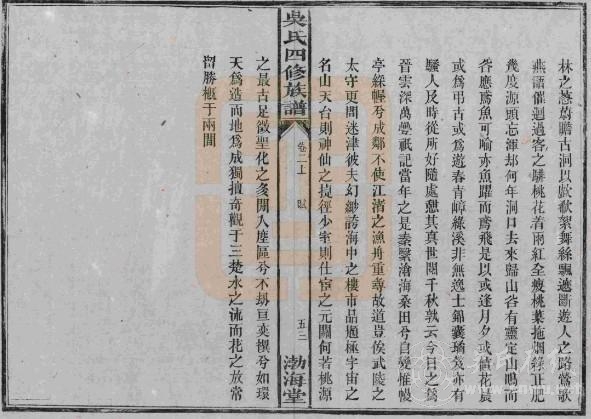 林之葱蔚瞻古洞以歔欷絮舞絲飄遮斷遊人之路鶯歌
燕語催迴過客之驂桃花着雨紅全瘦桃葉拖烟綠正肥
幾度源頭忘渾却何年洞口去來歸山谷有靈定山鳴而
谷應鳶魚可喻亦魚躍而鳶飛是以或逢月夕或值花晨
或為弔古或為遊春青嶂綠溪非無逸士錦囊瑤笈亦有
騷人及時從所好隨處憇其真世閱千秋孰云今日之為
晉雲深萬疊祇記當年之是秦繄滄海桑田兮自變惟幔
亭綵幄兮成鄰不使江渚之漁舟重尋故道豈俟武陵之
太守更問迷津彼夫幻緲誇海中之樓市品題極宇宙之
名山天台則神仙之捷徑少室則仕宦之元關何若桃源
吳氏四修族譜
卷二上
賦
五三
渤海堂
之最古足徵聖化之多閒人塵區兮不拗亘奕禩兮如環
天為造而地為成獨擅奇觀于三楚水之流而花之放常
留勝概于兩間